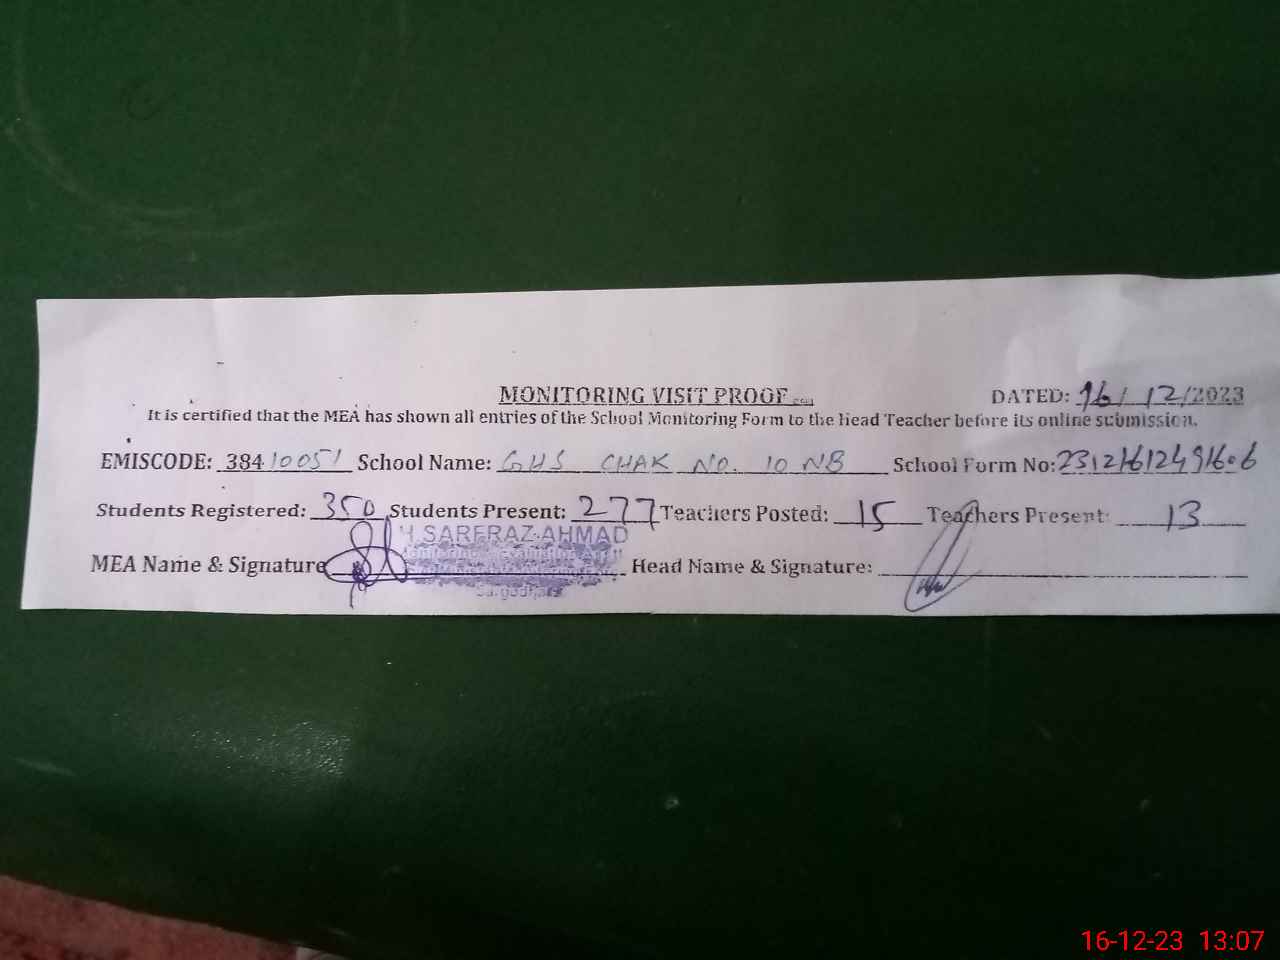 MONITORING VISIT PROOF DATED: 16/12/2023
It is certified that the MEA has shown all entries of the School Monitoring Form to the Head Teacher before its online submission.
EMISCODE: 38410051 School Name: GHS CHAK NO. 10 NB School Form No:
Students Registered: 350 Students Present: 277 Teachers Posted: 15 Teachers Present: 13
SARFRAZ AHMAD
MEA Name & Signature Head Name & Signature:
Sargodha
16-12-23 13:07